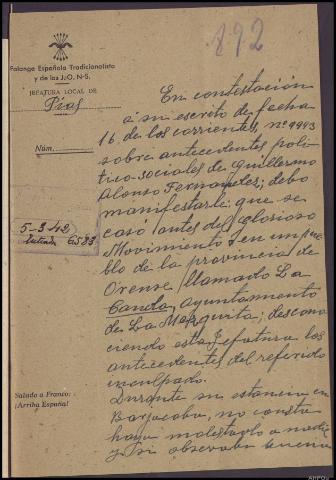 892
Falange Española Tradicionalista
y de las J.O.N-S.
JEFATURA LOCAL DE
Pías
Núm.
5-3-42
Entrada 6583
En contestación
a su escrito de fecha
16 de los corrientes, nº 9993
sobre antecedentes polí-
tico-sociales de Guillermo
Alonso Fernandez; debo
manifestarle: que se
casó antes del glorioso
Movimiento en un pue-
blo de la provincia de
Orense llamado La
Canda, ayuntamiento
de La Mezquita; descono
ciendo esta Jefatura los
antecedentes del referido
inculpado.
Durante su estancia en
Barjacoba, no consta
haya molestado a nadie
y si observado buena
Saludo a Franco:
¡Arriba España!